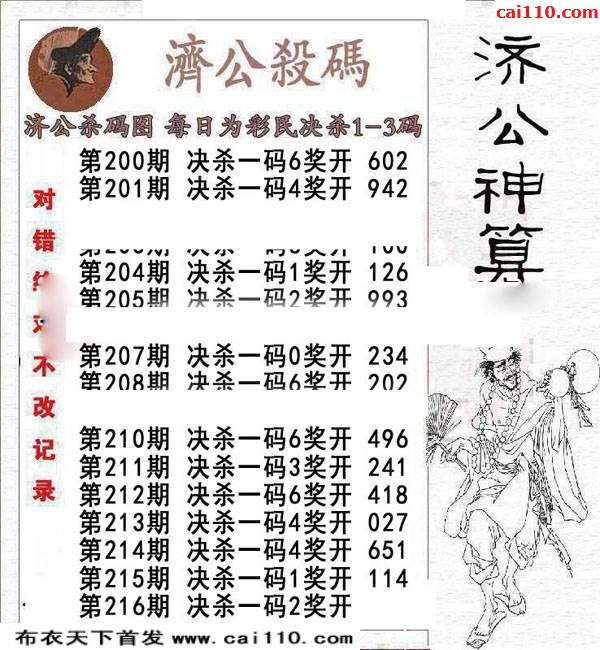 cai110.com
濟公殺碼
济公杀码图 每日为彩民决杀1-3码
第200期 决杀一码6奖开 602
第201期 决杀一码4奖开 942
第204期 决杀一码1奖开 126
第205期 决杀一码2奖开 993
第207期 决杀一码0奖开 234
第208期 决杀一码6奖开 202
第210期 决杀一码6奖开 496
第211期 决杀一码3奖开 241
第212期 决杀一码6奖开 418
第213期 决杀一码4奖开 027
第214期 决杀一码4奖开 651
第215期 决杀一码1奖开 114
第216期 决杀一码2奖开
对错 不改记录
济公神算
布衣天下首发 www.cai110.com